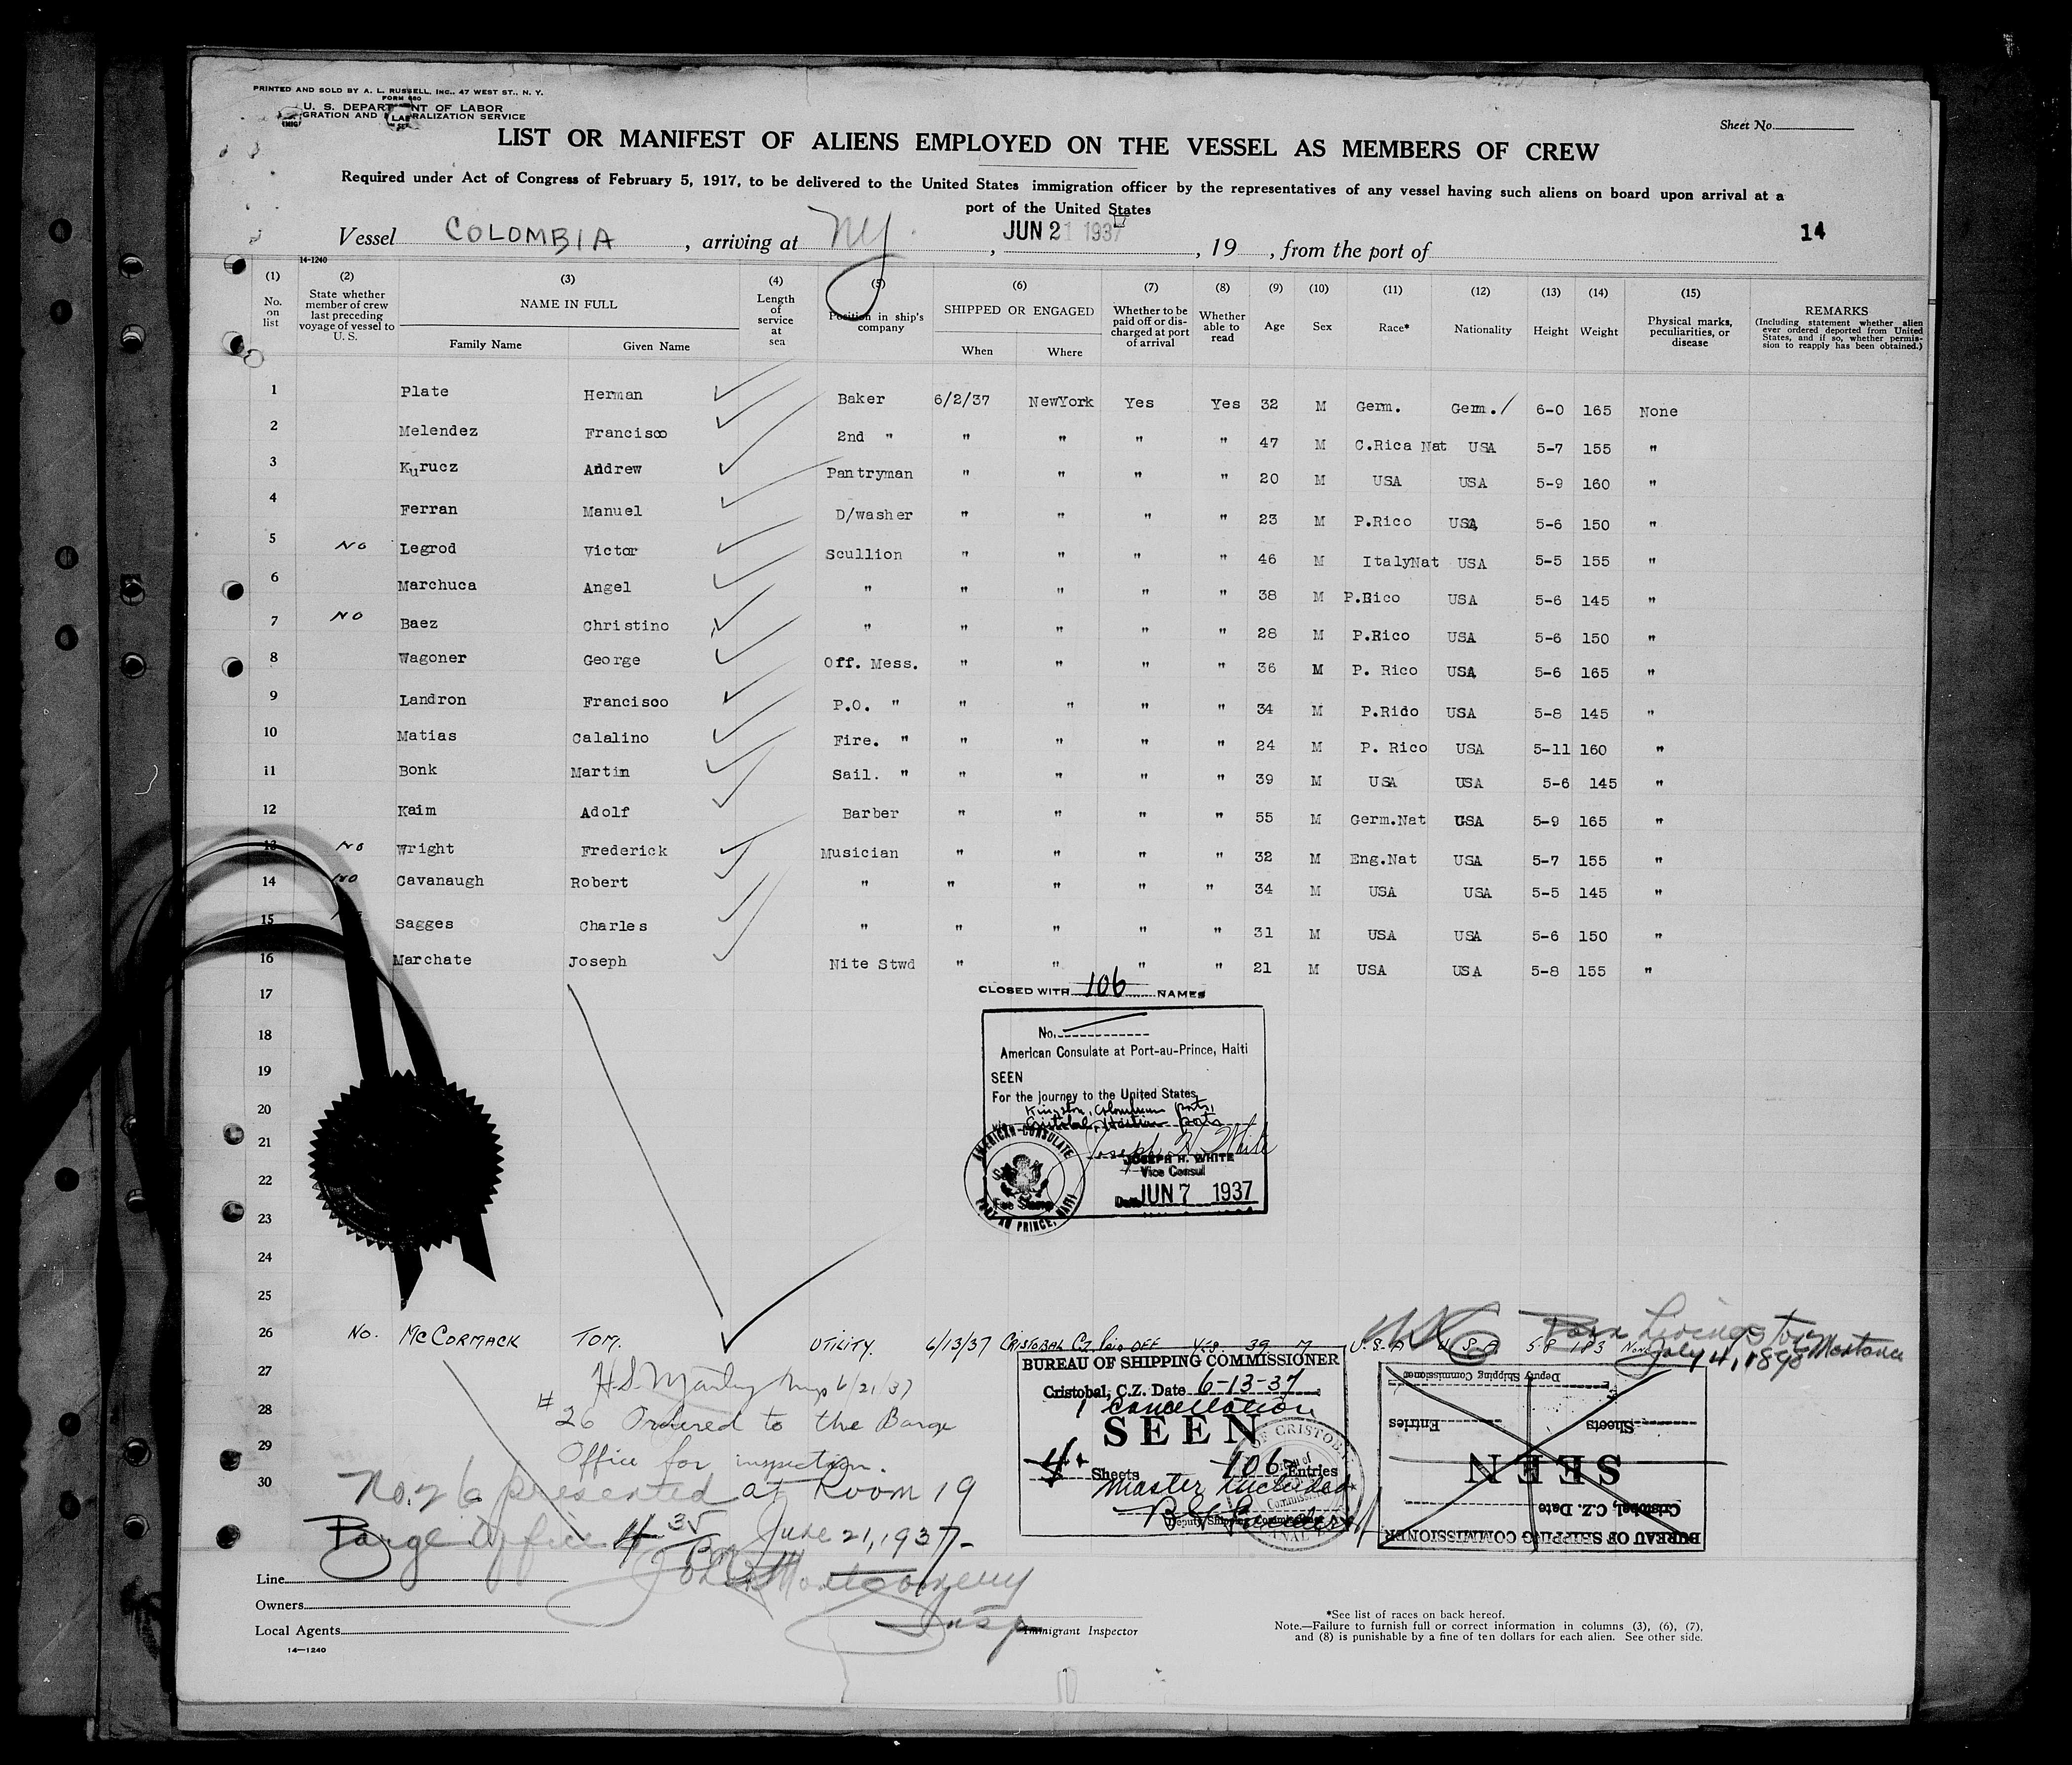 PRINTED AND SOLD BY A. L. RUSSELL, INC., 47 WEST ST., N. Y.
FORM 680
U. S. DEPARTMENT OF LABOR
GRATION AND NATURALIZATION SERVICE
Sheet No.
LIST OR MANIFEST OF ALIENS EMPLOYED ON THE VESSEL AS MEMBERS OF CREW
Required under Act of Congress of February 5, 1917, to be delivered to the United States immigration officer by the representatives of any vessel having such aliens on board upon arrival at a
port of the United States
Vessel COLOMBIA, arriving at NY., JUN 21 1937, 19, from the port of
14
14-1240
(1) No. on list (2) State whether member of crew last preceding voyage of vessel to U. S. (3) NAME IN FULL Family Name Given Name (4) Length of service at sea (5) Position in ship's company (6) SHIPPED OR ENGAGED When Where (7) Whether to be paid off or discharged at port of arrival (8) Whether able to read (9) Age (10) Sex (11) Race* (12) Nationality (13) Height (14) Weight (15) Physical marks, peculiarities, or disease REMARKS (Including statement whether alien ever ordered deported from United States, and if so, whether permission to reapply has been obtained.)
1 Plate Herman Baker 6/2/37 NewYork Yes Yes 32 M Germ. Germ. 6-0 165 None
2 Melendez Francisco 2nd " " " " " 47 M C.Rica Nat USA 5-7 155 "
3 Kurucz Andrew Pantryman " " " " 20 M USA USA 5-9 160 "
4 Ferran Manuel D/washer " " " " 23 M P.Rico USA 5-6 150 "
5 No Legrod Victor Scullion " " " " 46 M ItalyNat USA 5-5 155 "
6 Marchuca Angel " " " " " 38 M P.Rico USA 5-6 145 "
7 NO Baez Christino " " " " " 28 M P.Rico USA 5-6 150 "
8 Wagoner George Off. Mess. " " " " 36 M P. Rico USA 5-6 165 "
9 Landron Francisco P.O. " " " " " 34 M P.Rido USA 5-8 145 "
10 Matias Calalino Fire. " " " " " 24 M P. Rico USA 5-11 160 "
11 Bonk Martin Sail. " " " " " 39 M USA USA 5-6 145 "
12 Kaim Adolf Barber " " " " 55 M Germ.Nat USA 5-9 165 "
13 No Wright Frederick Musician " " " " 32 M Eng.Nat USA 5-7 155 "
14 No Cavanaugh Robert " " " " " 34 M USA USA 5-5 145 "
15 Sagges Charles " " " " " 31 M USA USA 5-6 150 "
16 Marchate Joseph Nite Stwd " " " " 21 M USA USA 5-8 155 "
17
CLOSED WITH 106 NAMES
18
No.
American Consulate at Port-au-Prince, Haiti
19
SEEN
For the journey to the United States
20
Kingston, Colombian ports,
Cristobal, Haitian ports
21
Joseph H. White
JOSEPH H. WHITE
Vice Consul
22
Date JUN 7 1937
AMERICAN CONSULATE
Fee Stamp
PORT AU PRINCE, HAITI
23
24
25
26 No. McCORMACK TOM. UTILITY. 6/13/37 CRISTOBAL C.Z. Paid OFF Yes 39 M U.S.A U.S.A 5-8 183 None
Born Livingston Montana
July 4, 1898
27
H.S. Manley Insp 6/21/37
28
# 26 Ordered to the Barge
29
Office for inspection.
30
No. 26 presented at Room 19
Barge Office 4 35 Pm June 21, 1937-
John Montgomery
Insp
BUREAU OF SHIPPING COMMISSIONER
Cristobal, C.Z. Date 6-13-37
1 Cancellation
SEEN
4 Sheets 106 Entries
Master included
Deputy Shipping Commissioner
BUREAU OF SHIPPING COMMISSIONER
Cristobal, C.Z. Date
SEEN
Sheets Entries
Deputy Shipping Commissioner
Line
Owners
Local Agents
14—1240
Immigrant Inspector
*See list of races on back hereof.
Note.—Failure to furnish full or correct information in columns (3), (6), (7),
and (8) is punishable by a fine of ten dollars for each alien. See other side.